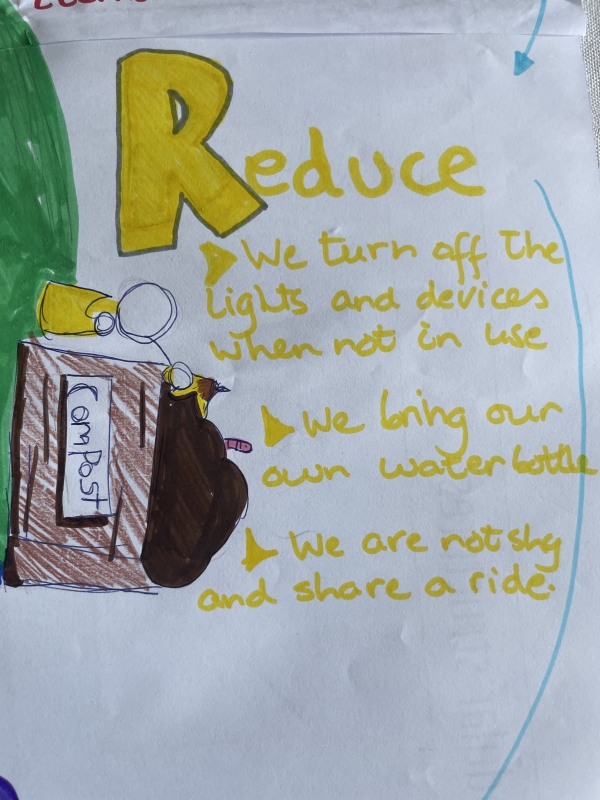 Reduce
We turn off the
lights and devices
when not in use
We bring our
own water bottle
We are not shy
and share a ride.
Compost